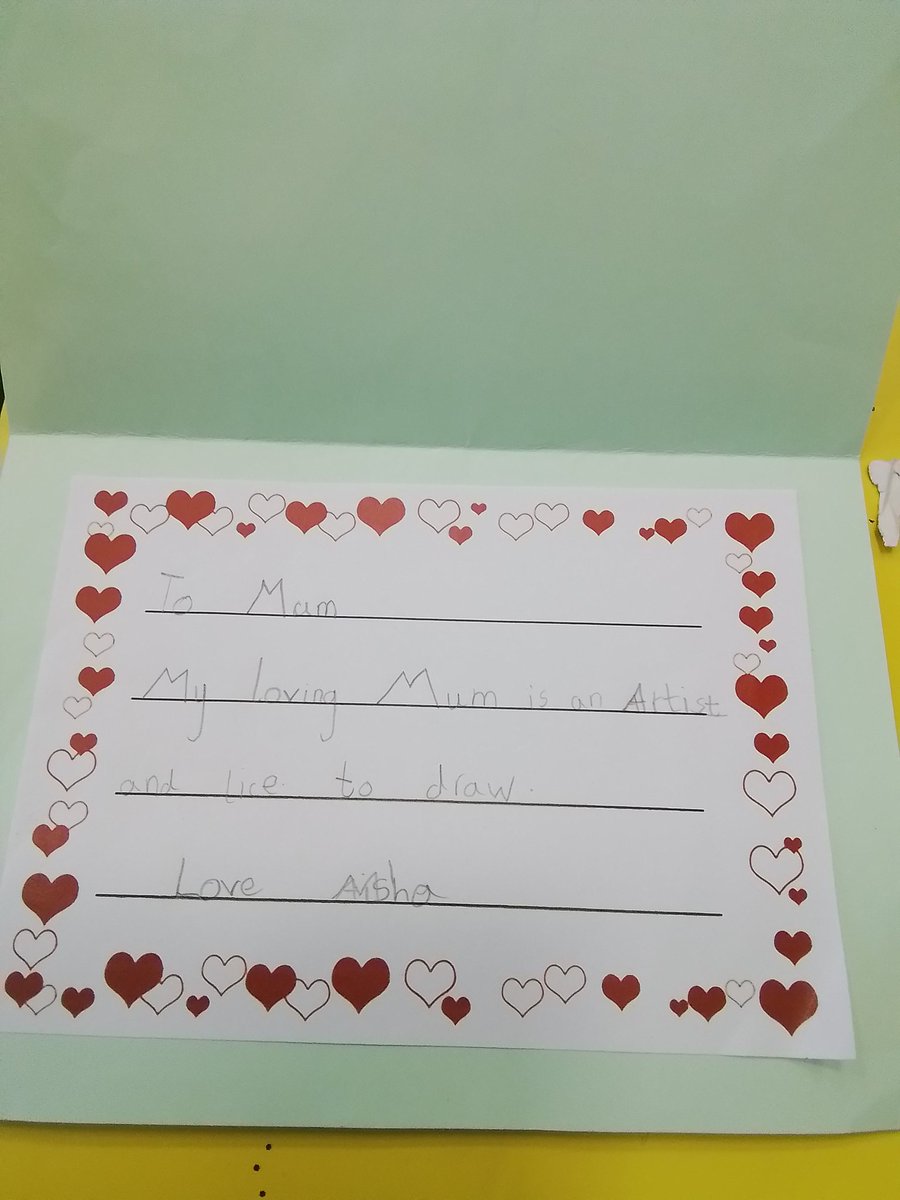 To Mum
My loving Mum is an Artist
and lice to draw.
Love Aisha